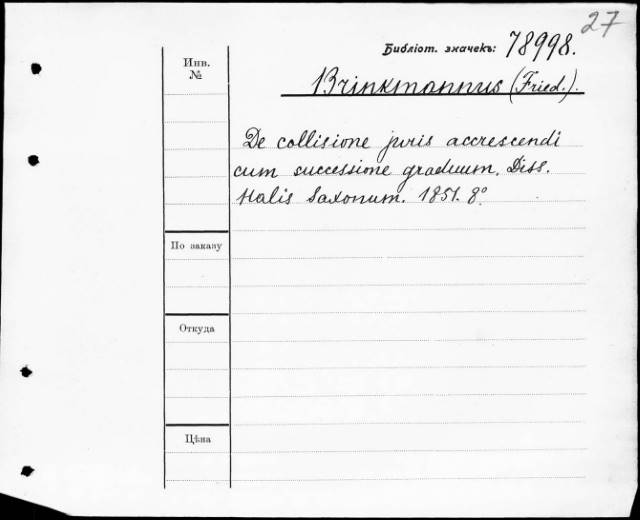 27
Библіот. значекъ: 78998.
Инв.
№
Brinkmannus (Fried.).
De collisione juris accrescendi
cum successione graduum. Diss.
Halis Saxonum. 1851. 8°.
По заказу
Откуда
Цѣна